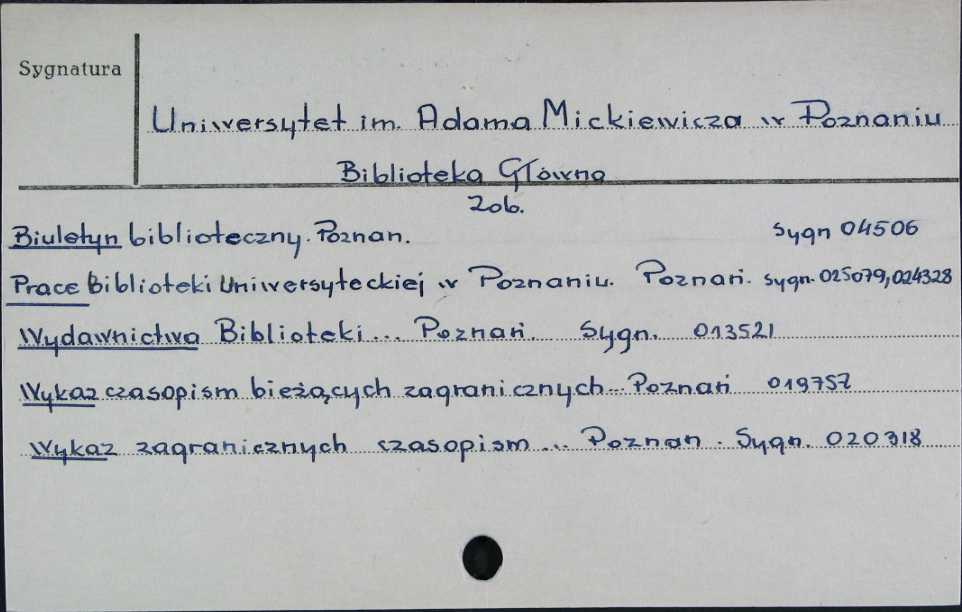 Sygnatura
Uniwersytet im. Adama Mickiewicza w Poznaniu
Biblioteka Główna
Zob.
Biuletyn biblioteczny. Poznan. Sygn 04506
Prace Biblioteki Uniwersyteckiej w Poznaniu. Poznań. sygn. 025079, 024328
Wydawnictwa Biblioteki... Poznań. Sygn. 013521
Wykaz czasopism bieżących zagranicznych... Poznań 019757
Wykaz zagranicznych czasopism... Poznan. Sygn. 020318